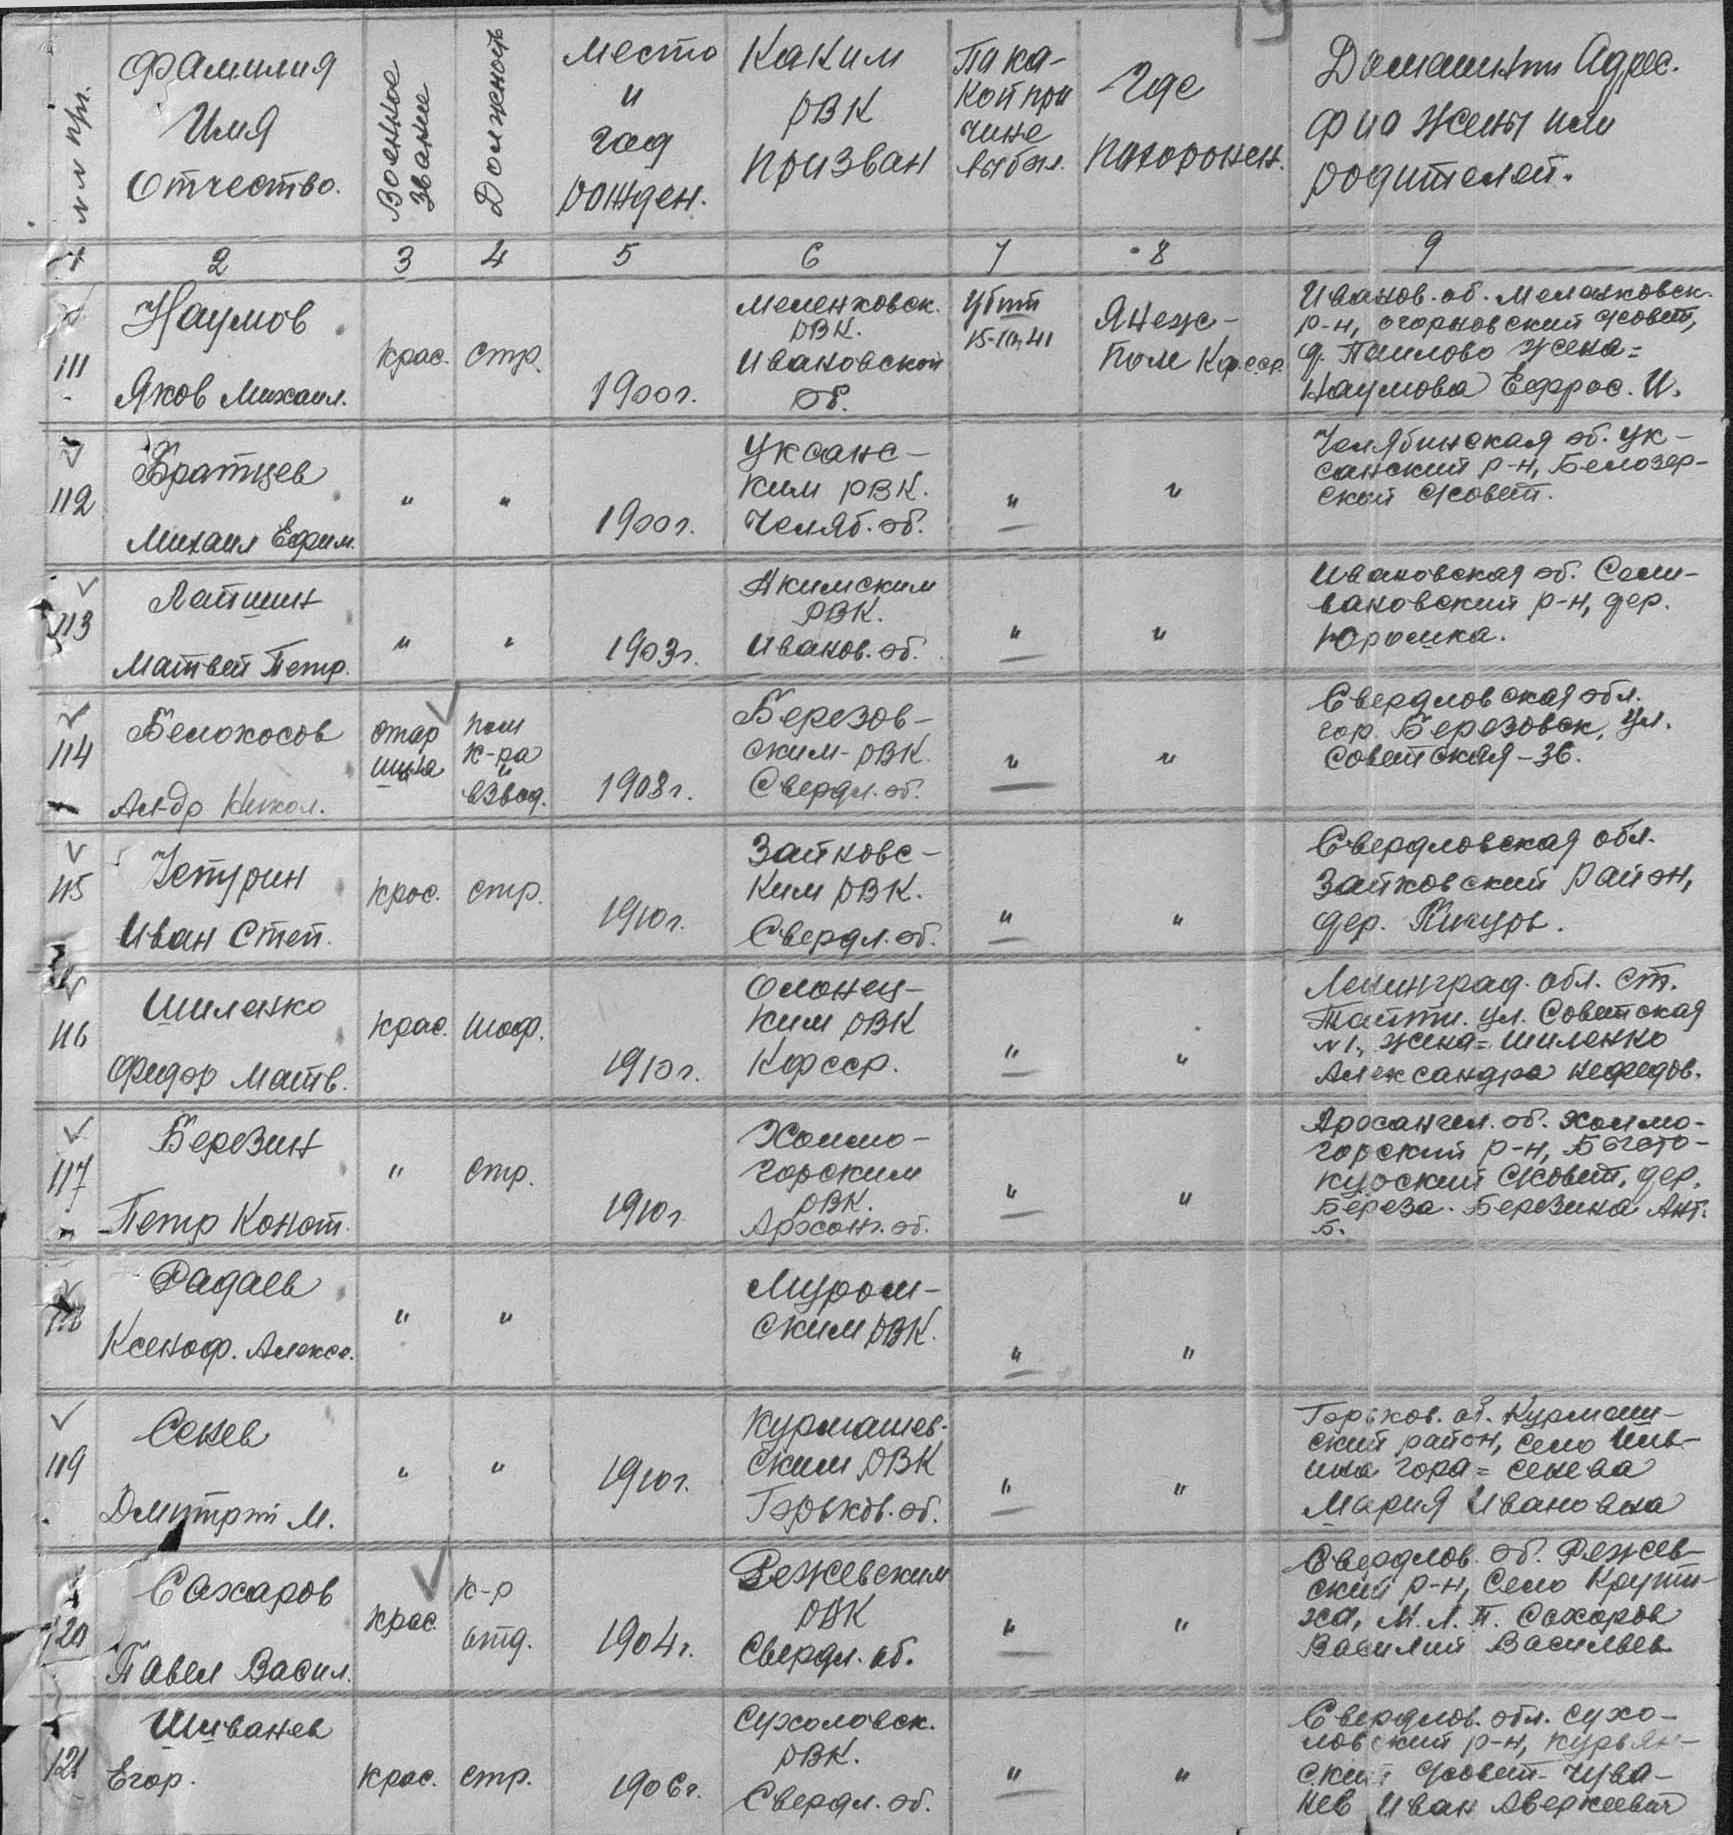 19
№№ пр.
Фамилия
Имя
Отчество.
Военное
звание
Должность
Место
и
год
рожден.
Каким
РВК
призван
По ка-
кой при
чине
выбыл.
Где
похоронен.
Домашний Адрес.
фио жены или
родителей.
1 2 3 4 5 6 7 8 9
111
Наумов
Яков Михаил.
Крас.
Стр.
1900г.
Меленковск.
РВК.
Ивановской
об.
Убит
Янеж-
поле Кфсср.
Иванов. об. Меленковск.
р-н,
Жена=
Наумова Ефрос. И.
112
Братцев
Михаил Ефим.
"
"
1900г.
Уксянс-
ким РВК.
Челяб. об.
"
"
Челябинская об. Ук-
санский р-н, Белозер-
ской с/совет.
113
Лапшин
Матвей Петр.
"
"
1903г.
РВК.
Иванов. об.
"
"
Ивановская об. Сели-
вановский р-н, дер.
Юромка.
114
Белоносов
Ал-др Никол.
стар
шина
пом
к-ра
взвод.
1908г.
Березов-
ским РВК.
Свердл. об.
"
"
Свердловская обл.
гор. Березовск, ул.
Советская-36.
115
Устурин
Иван Степ.
Крас.
стр.
1910г.
Зайковс-
ким РВК.
Свердл. об.
"
"
Свердловская обл.
Зайковский район,
дер.
116
Шиленко
Фидор Матв.
Крас.
Шоф.
1910г.
Олонец-
ким РВК
Кфсср.
"
"
Ленинград. обл. ст.
Тайпи. ул. Советская
№1, жена=Шиленко
Александра Нефедов.
117
Березин
Петр Конст.
"
стр.
1910г.
Холмо-
горским
РВК.
Архан. об.
"
"
Архангел. об. Холмо-
горский р-н,
курский с/совет, дер.
Береза. Березина Ант.
Б.
118
Радаев
Ксеноф. Алекс.
"
"
Муром-
ским РВК.
"
"
119
Сенев
Дмитрий М.
"
"
1910г.
Курмашев-
ским РВК
Горьков. об.
"
"
Горьков. об. Курмаш-
ский район, село Иль-
ина гора=Сенева
Мария Ивановна
120
Сахаров
Павел Васил.
крас.
к-р
отд.
1904г.
Режевским
РВК
Свердл. об.
"
"
Свердлов. об. Режев-
ский р-н, село Крути-
ха, М. Л. П. Сахаров
Василий Васильев
121
Шиванев
Егор.
крас.
стр.
1906г.
Сухоловск.
РВК.
Свердл. об.
"
"
Свердлов. обл. Сухо-
ловский р-н, Курьян-
ский с/совет- Чува-
нев Иван Аверкиевич